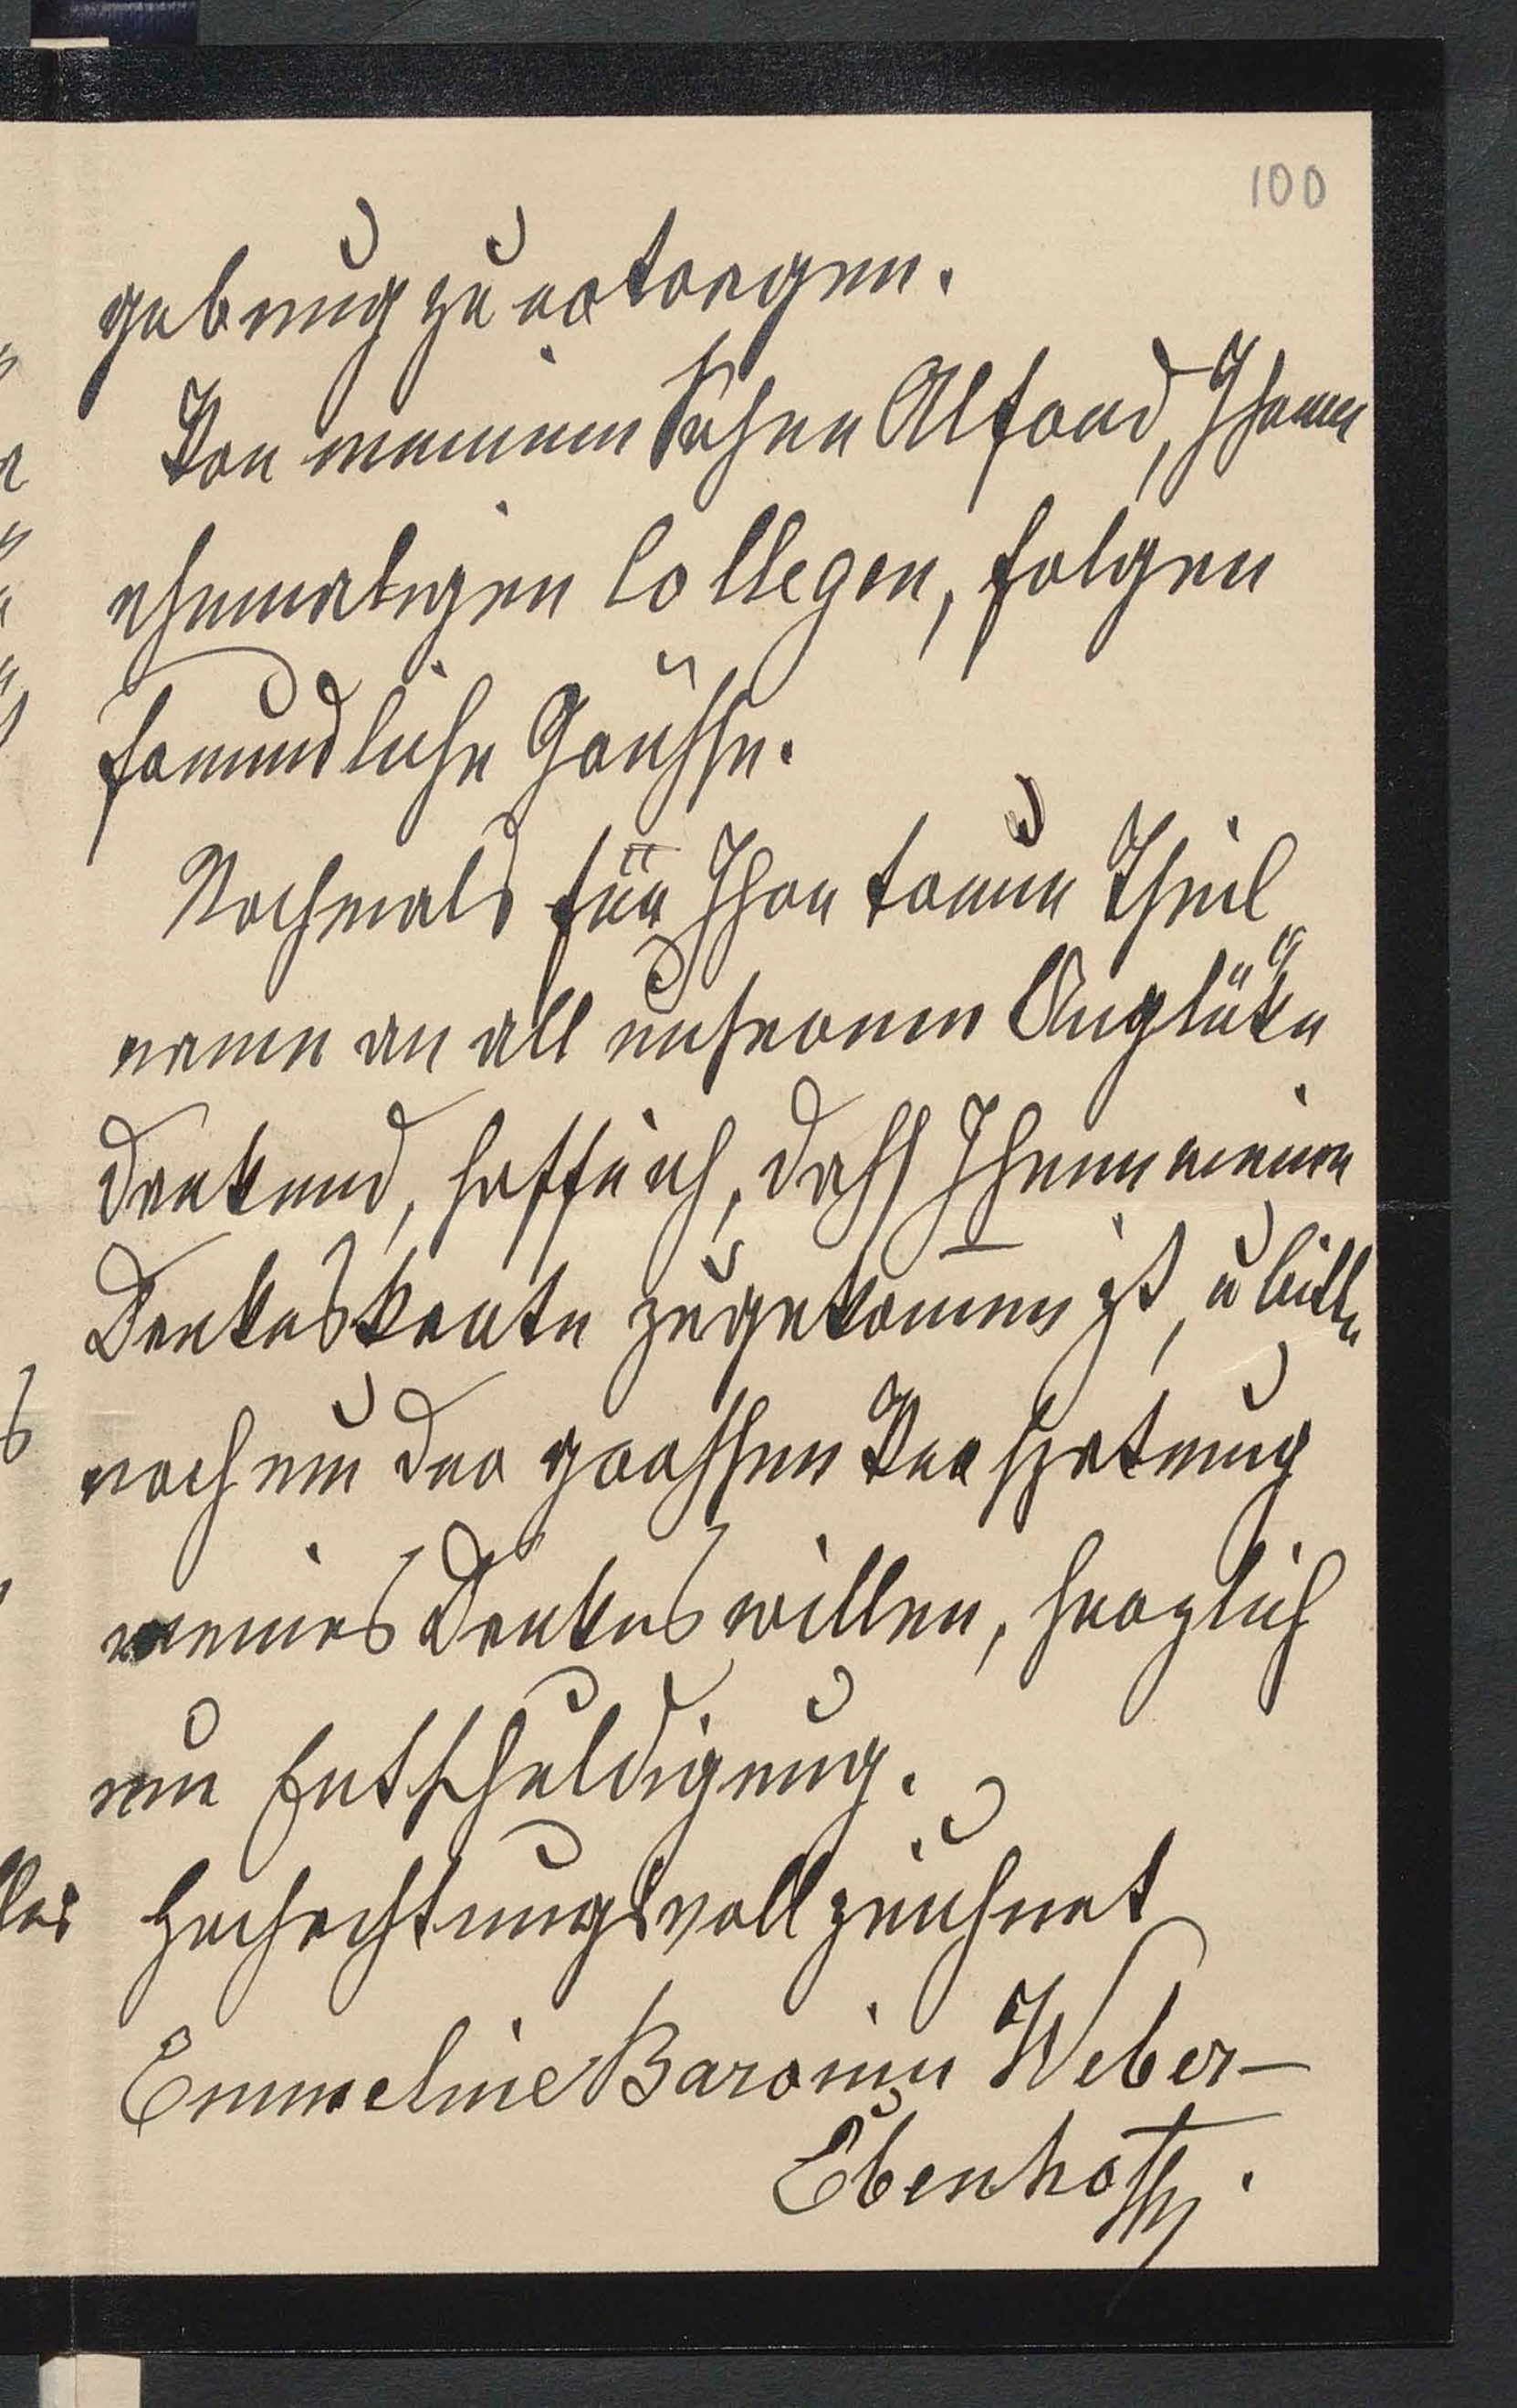 100
gebung zu ertragen.
Von meinem Sohne Alfred, Ihrem
ehemaligen Collegen, folgen
freundliche Grüsse.
Nochmals für Ihre treue Theil„
name an all unserem Unglüke
dankend, hoffe ich, dass Ihnen meine
Dankeskarte zugekomen ist, u bitte
noch um der grossen Verspätung
meines Dankes willen, herzlich
um Entschuldigung.
Hochachtungsvoll zeichnet
Emmeline Baronin Weber-
Ebenhof